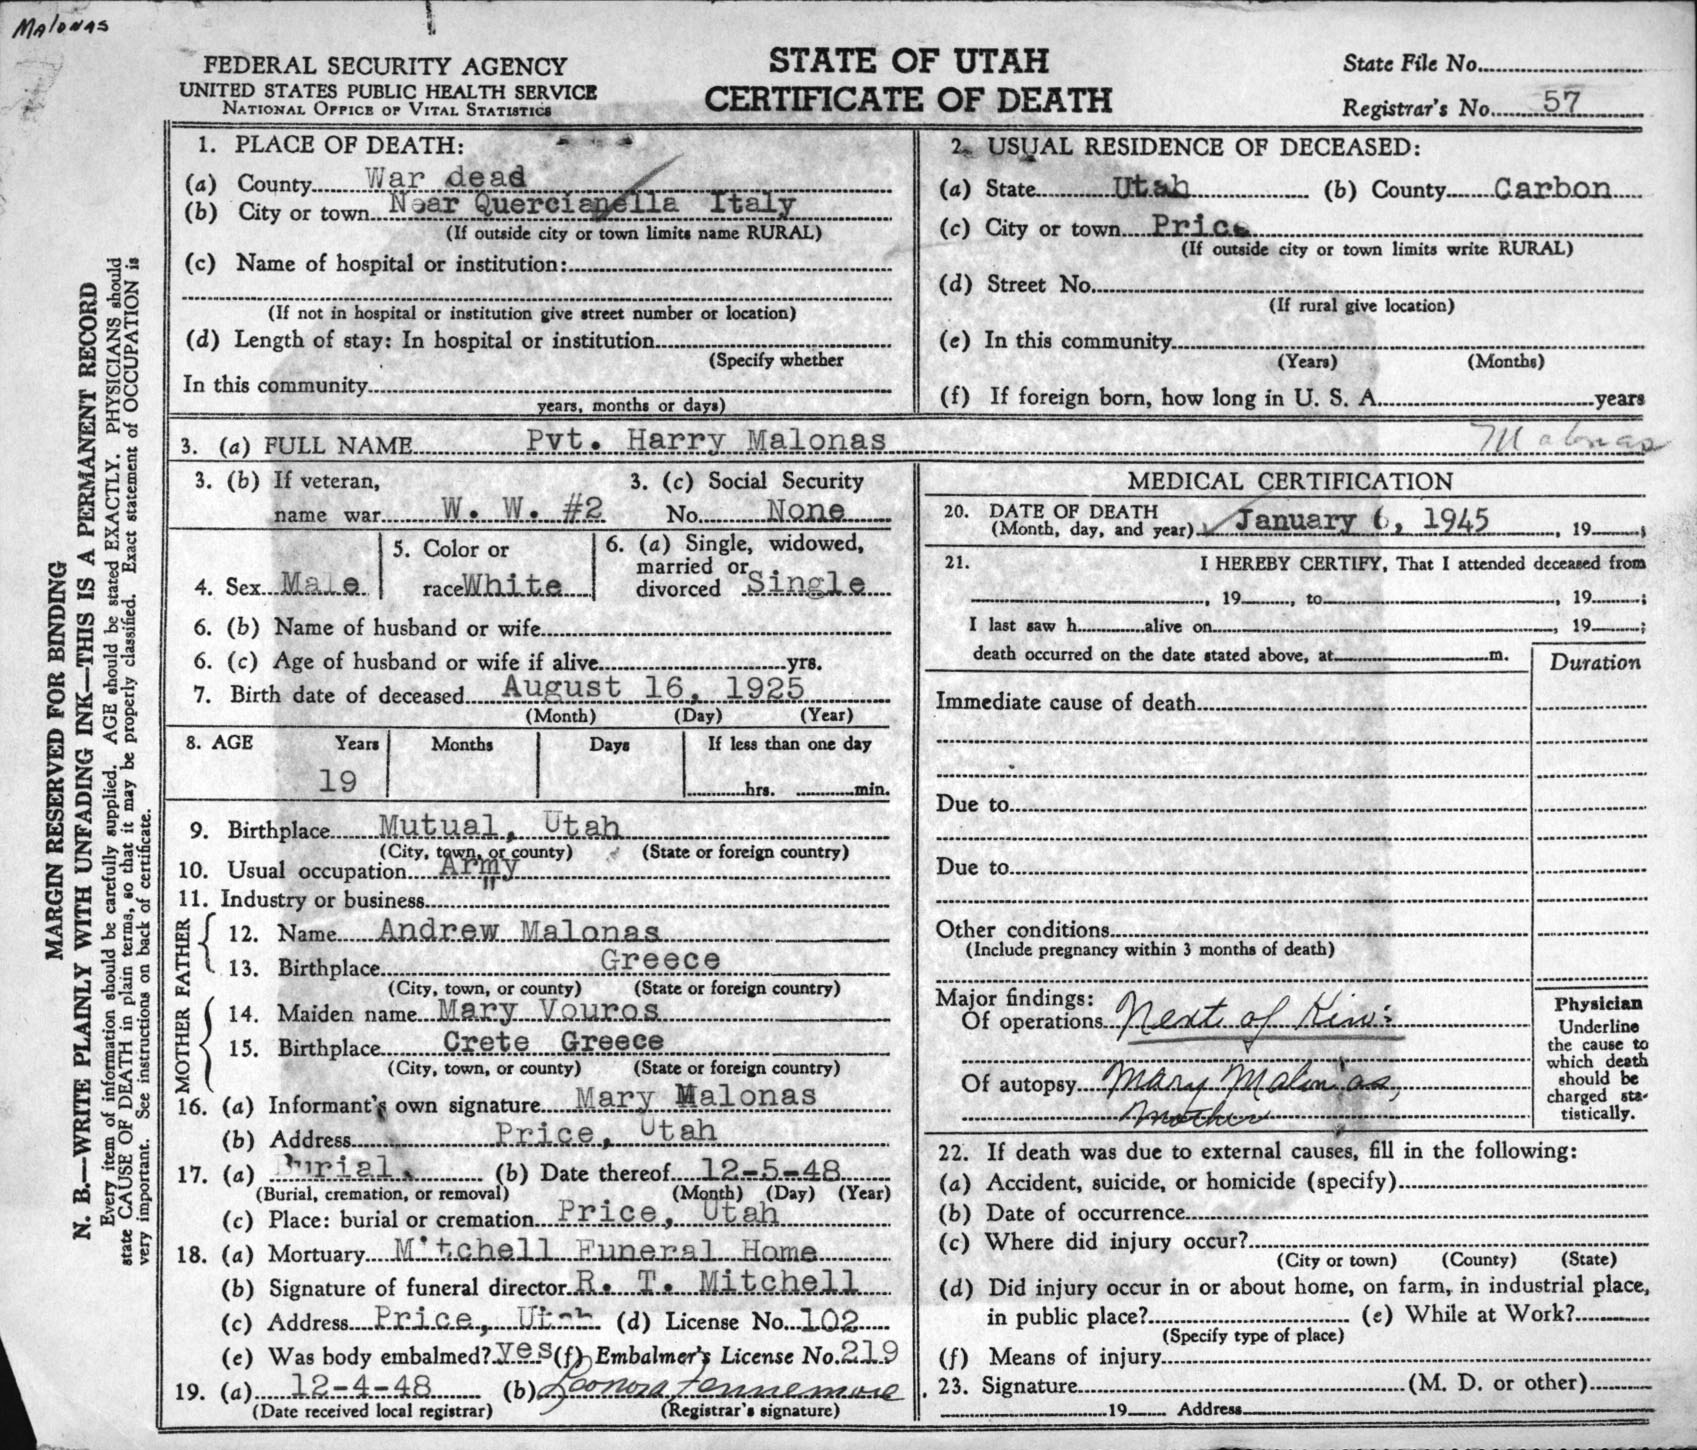 Malonas
FEDERAL SECURITY AGENCY
UNITED STATES PUBLIC HEALTH SERVICE
NATIONAL OFFICE OF VITAL STATISTICS
STATE OF UTAH
CERTIFICATE OF DEATH
State File No.
Registrar's No. 57
MARGIN RESERVED FOR BINDING
N. B.—WRITE PLAINLY WITH UNFADING INK—THIS IS A PERMANENT RECORD
Every item of information should be carefully supplied. AGE should be stated EXACTLY. PHYSICIANS should
state CAUSE OF DEATH in plain terms, so that it may be properly classified. Exact statement of OCCUPATION is
very important. See instructions on back of certificate.
1. PLACE OF DEATH:
(a) County War dead
(b) City or town Near Quercianella Italy
(If outside city or town limits name RURAL)
(c) Name of hospital or institution:
(If not in hospital or institution give street number or location)
(d) Length of stay: In hospital or institution
(Specify whether
In this community
years, months or days)
2. USUAL RESIDENCE OF DECEASED:
(a) State Utah (b) County Carbon
(c) City or town Price
(If outside city or town limits write RURAL)
(d) Street No.
(If rural give location)
(e) In this community
(Years) (Months)
(f) If foreign born, how long in U. S. A. years
3. (a) FULL NAME Pvt. Harry Malonas Malonas
3. (b) If veteran, 3. (c) Social Security
name war W. W. #2 No. None
4. Sex Male
5. Color or
race White
6. (a) Single, widowed,
married or
divorced Single
6. (b) Name of husband or wife
6. (c) Age of husband or wife if alive yrs.
7. Birth date of deceased August 16, 1925
(Month) (Day) (Year)
8. AGE Years Months Days If less than one day
19 hrs. min.
9. Birthplace Mutual, Utah
(City, town, or county) (State or foreign country)
10. Usual occupation Army
11. Industry or business "
FATHER
12. Name Andrew Malonas
13. Birthplace Greece
(City, town, or county) (State or foreign country)
MOTHER
14. Maiden name Mary Vouros
15. Birthplace Crete Greece
(City, town, or county) (State or foreign country)
16. (a) Informant's own signature Mary Malonas
(b) Address Price, Utah
17. (a) Burial. (b) Date thereof 12-5-48
(Burial, cremation, or removal) (Month) (Day) (Year)
(c) Place: burial or cremation Price, Utah
18. (a) Mortuary Mitchell Funeral Home
(b) Signature of funeral director R. T. Mitchell
(c) Address Price, Utah (d) License No. 102
(e) Was body embalmed? yes (f) Embalmer's License No. 219
19. (a) 12-4-48 (b) Leonora Fennemore
(Date received local registrar) (Registrar's signature)
MEDICAL CERTIFICATION
20. DATE OF DEATH
(Month, day, and year) January 6, 1945, 19 ;
21. I HEREBY CERTIFY, That I attended deceased from
, 19 , to , 19 ;
I last saw h alive on , 19 ;
death occurred on the date stated above, at m.
Duration
Immediate cause of death
Due to
Due to
Other conditions
(Include pregnancy within 3 months of death)
Major findings:
Of operations Next of Kin:
Of autopsy Mary Malonas,
Mother
Physician
Underline
the cause to
which death
should be
charged sta-
tistically.
22. If death was due to external causes, fill in the following:
(a) Accident, suicide, or homicide (specify)
(b) Date of occurrence
(c) Where did injury occur?
(City or town) (County) (State)
(d) Did injury occur in or about home, on farm, in industrial place,
in public place? (e) While at Work?
(Specify type of place)
(f) Means of injury
23. Signature (M. D. or other)
19 Address